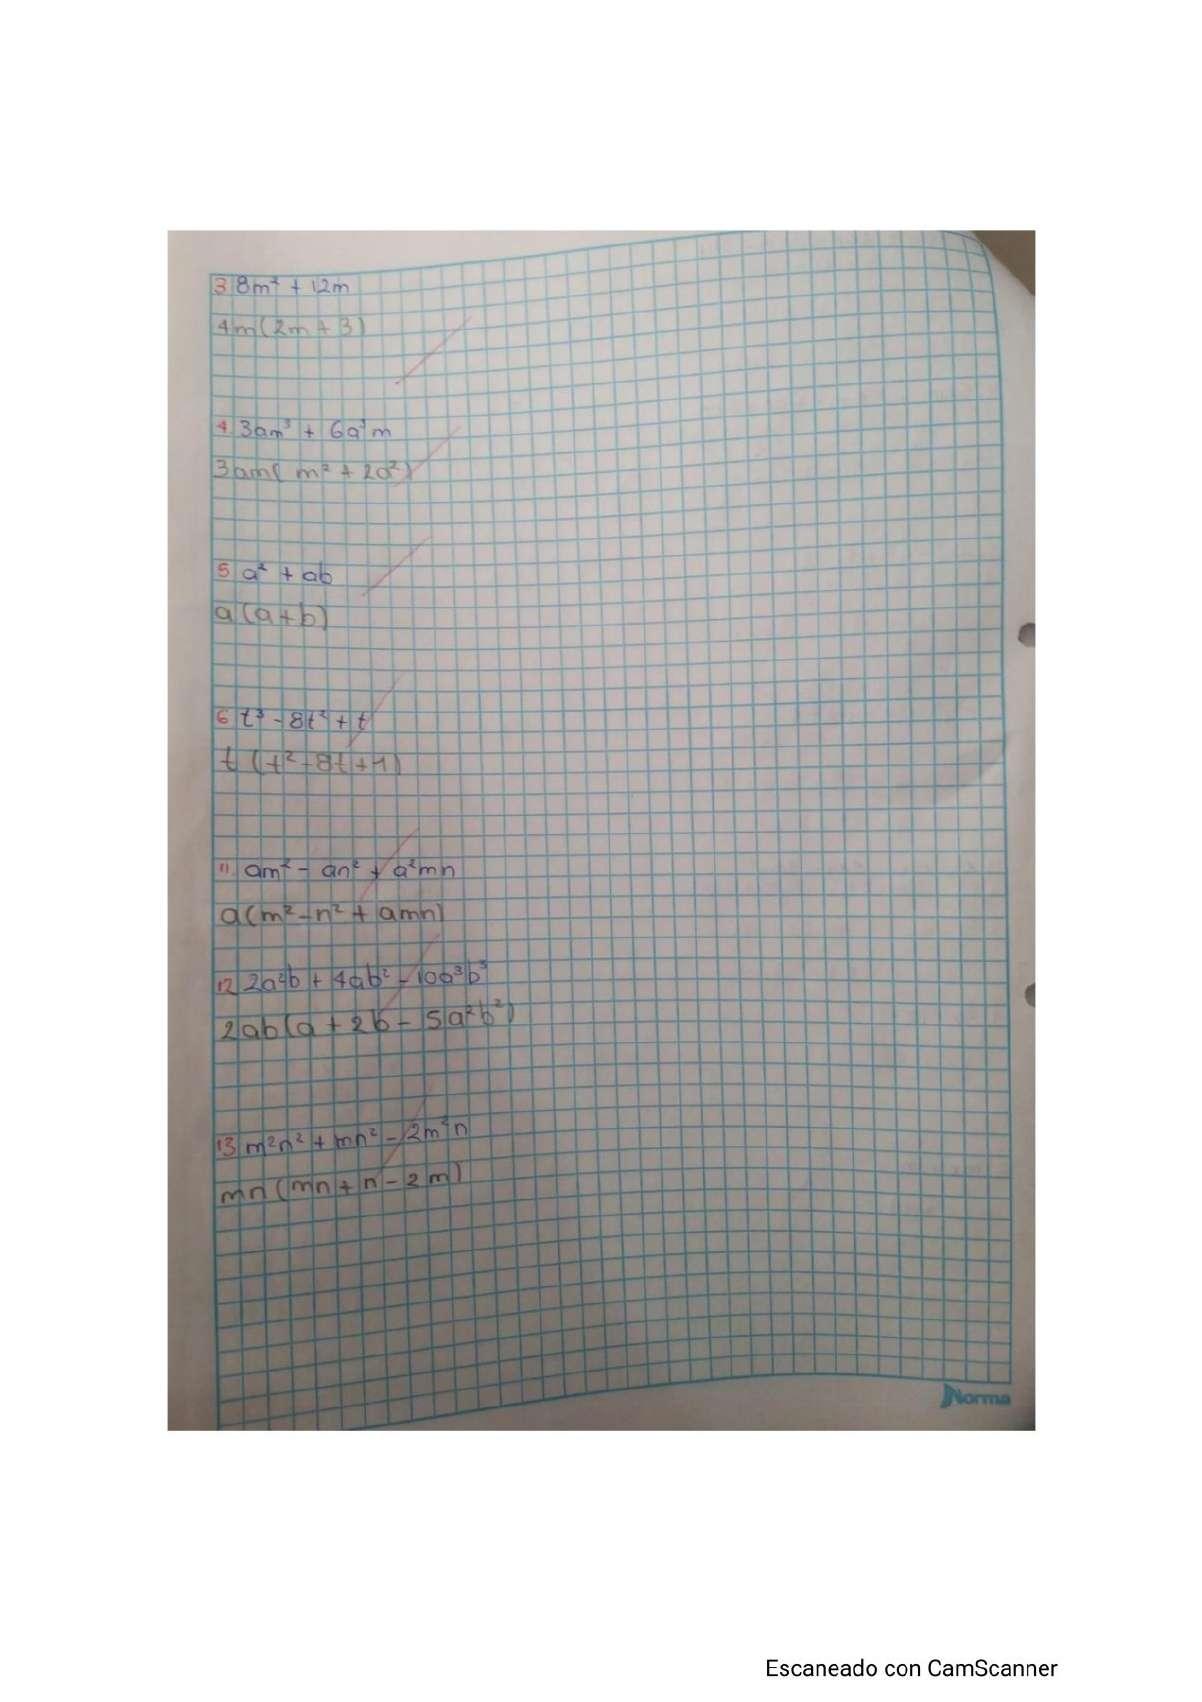 3 8m² + 12m
4m(2m + 3)
4. 3am³ + 6a³m
3am(m² + 2a²)
5 a² + ab
a(a+b)
6 t³ - 8t² + t
t (t² - 8t + 1)
11. am² - an² + a²mn
a(m² - n² + amn)
12 2a²b + 4ab² - 10a³b³
2ab(a + 2b - 5a²b²)
13 m²n² + mn² - 2m²n
mn (mn + n - 2m)
Norma
Escaneado con CamScanner